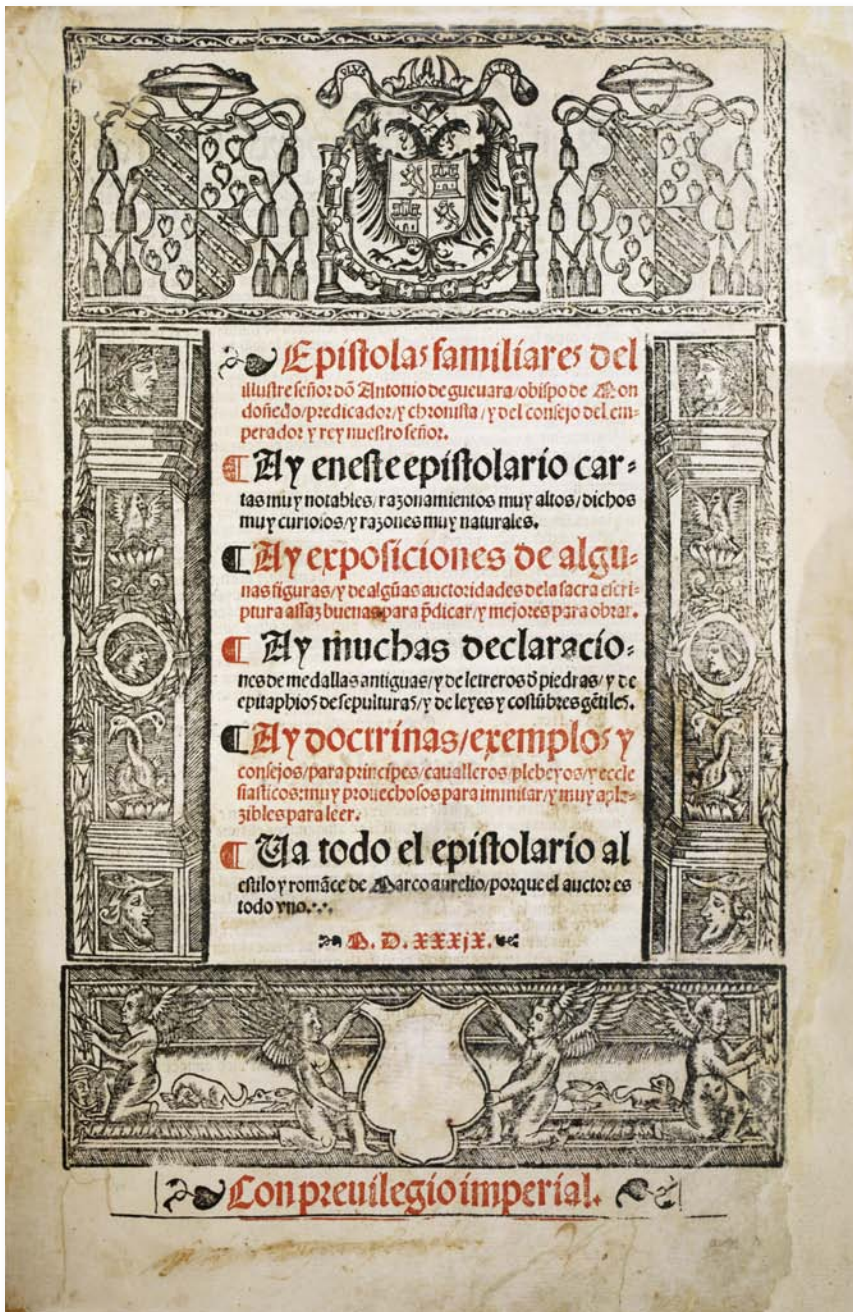 PLVS VLTR
Epistolas familiares del
illustre señor dõ Antonio de gueuara/obispo de Mon
doñedo/predicador/y chronista/y del consejo del em-
perador y rey nuestro señor.
¶ Ay eneste epistolario car-
tas muy notables/razonamientos muy altos/dichos
muy curiosos/y razones muy naturales.
¶ Ay exposiciones de algu-
nas figuras/y de algũas auctoridades dela sacra escri-
ptura assaz buenas para p̃dicar/y mejores para obrar.
¶ Ay muchas declaracio-
nes de medallas antiguas/y de letreros d̃ piedras/y de
epitaphios de sepulturas/y de leyes y costũbres gẽtiles.
¶ Ay doctrinas/exemplos y
consejos/para principes/caualleros/plebeyos/y eccle
siasticos:muy prouechosos para imnitar/y muy apla-
zibles para leer.
¶ Va todo el epistolario al
estilo y romãce de Marco aurelio/porque el auctor es
todo vno.
M. D. xxxjx.
Con preuilegio imperial.